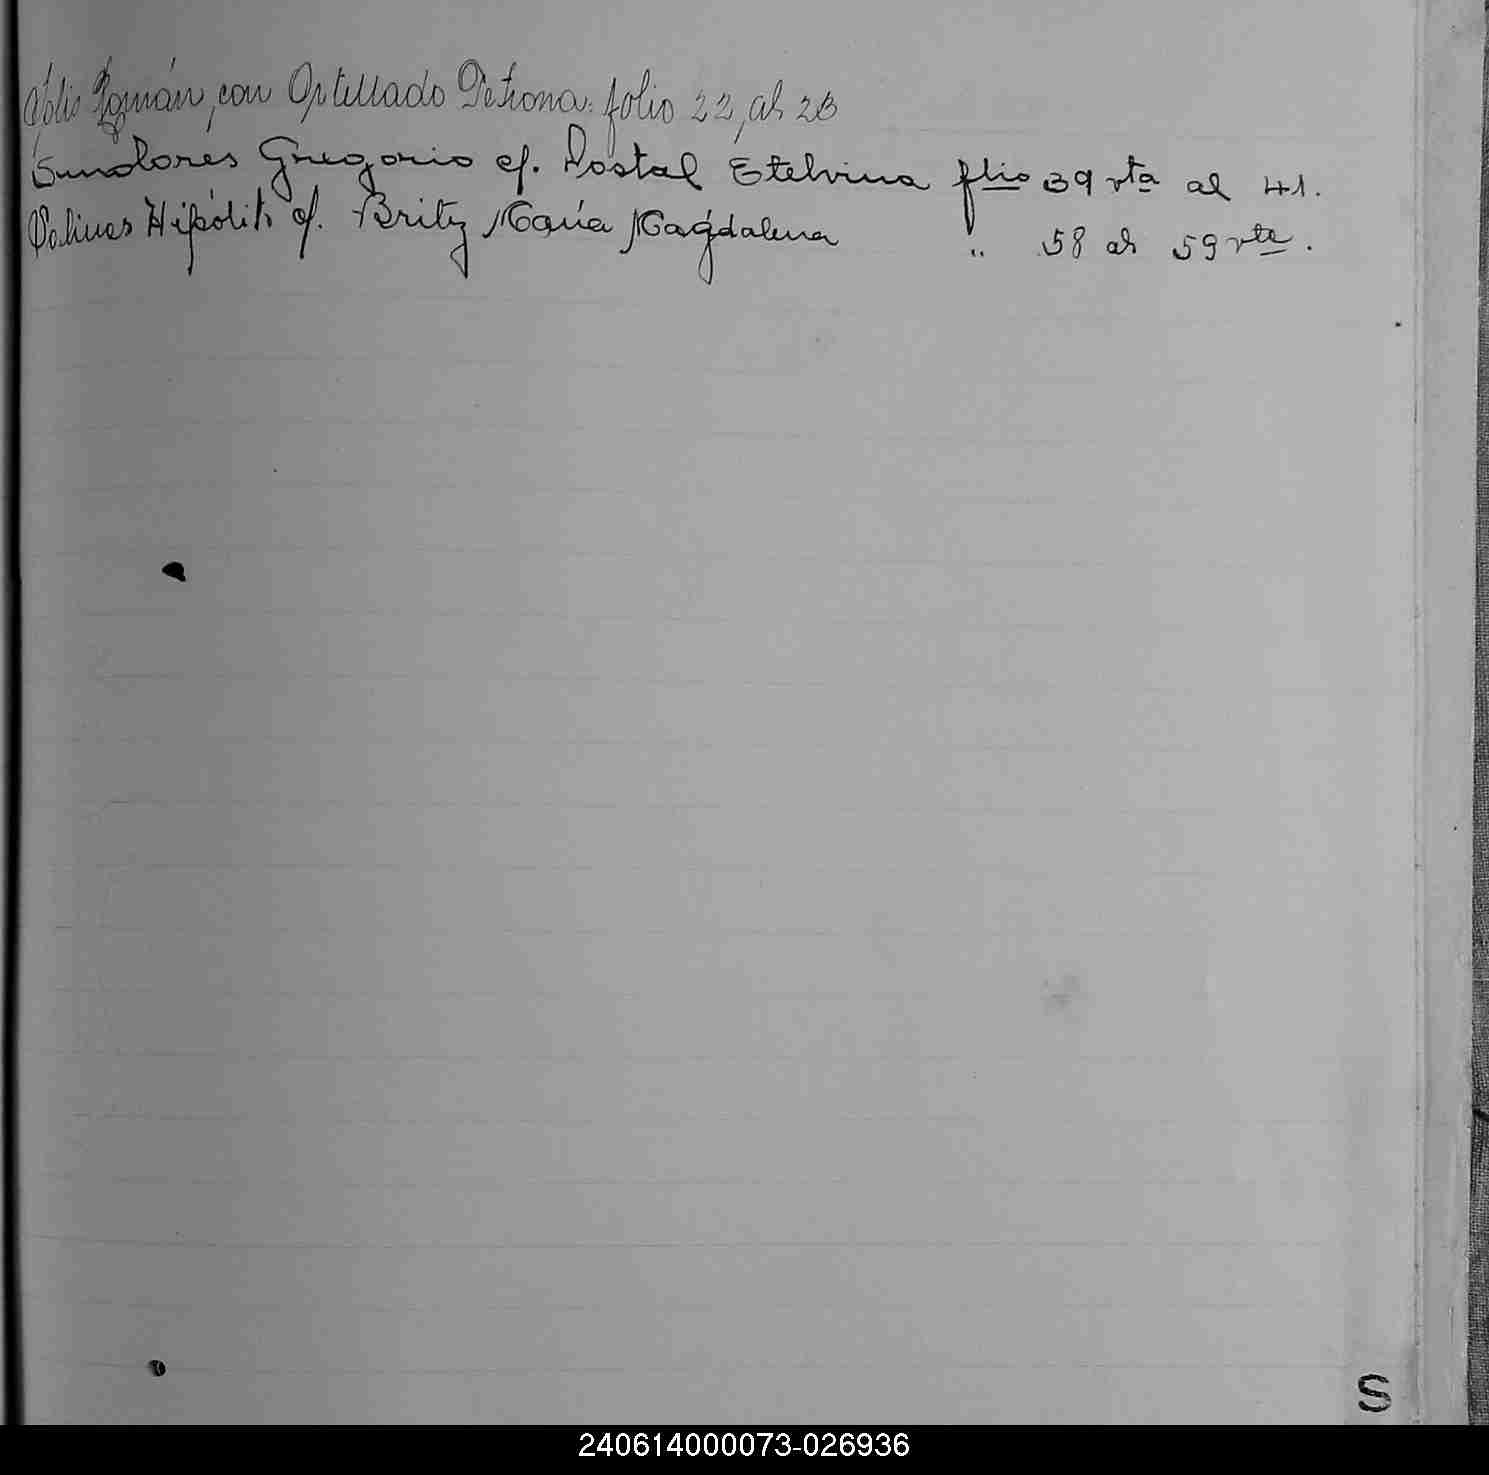 Solis Román, con Optellado Petrona. folio 22, al 23
Gregorio c/. Dostal Etelvina flio 39 vta al 41.
Salinas Hipólito c/. Britz María Magdalena " 58 al 59 vta.
S
240614000073-026936